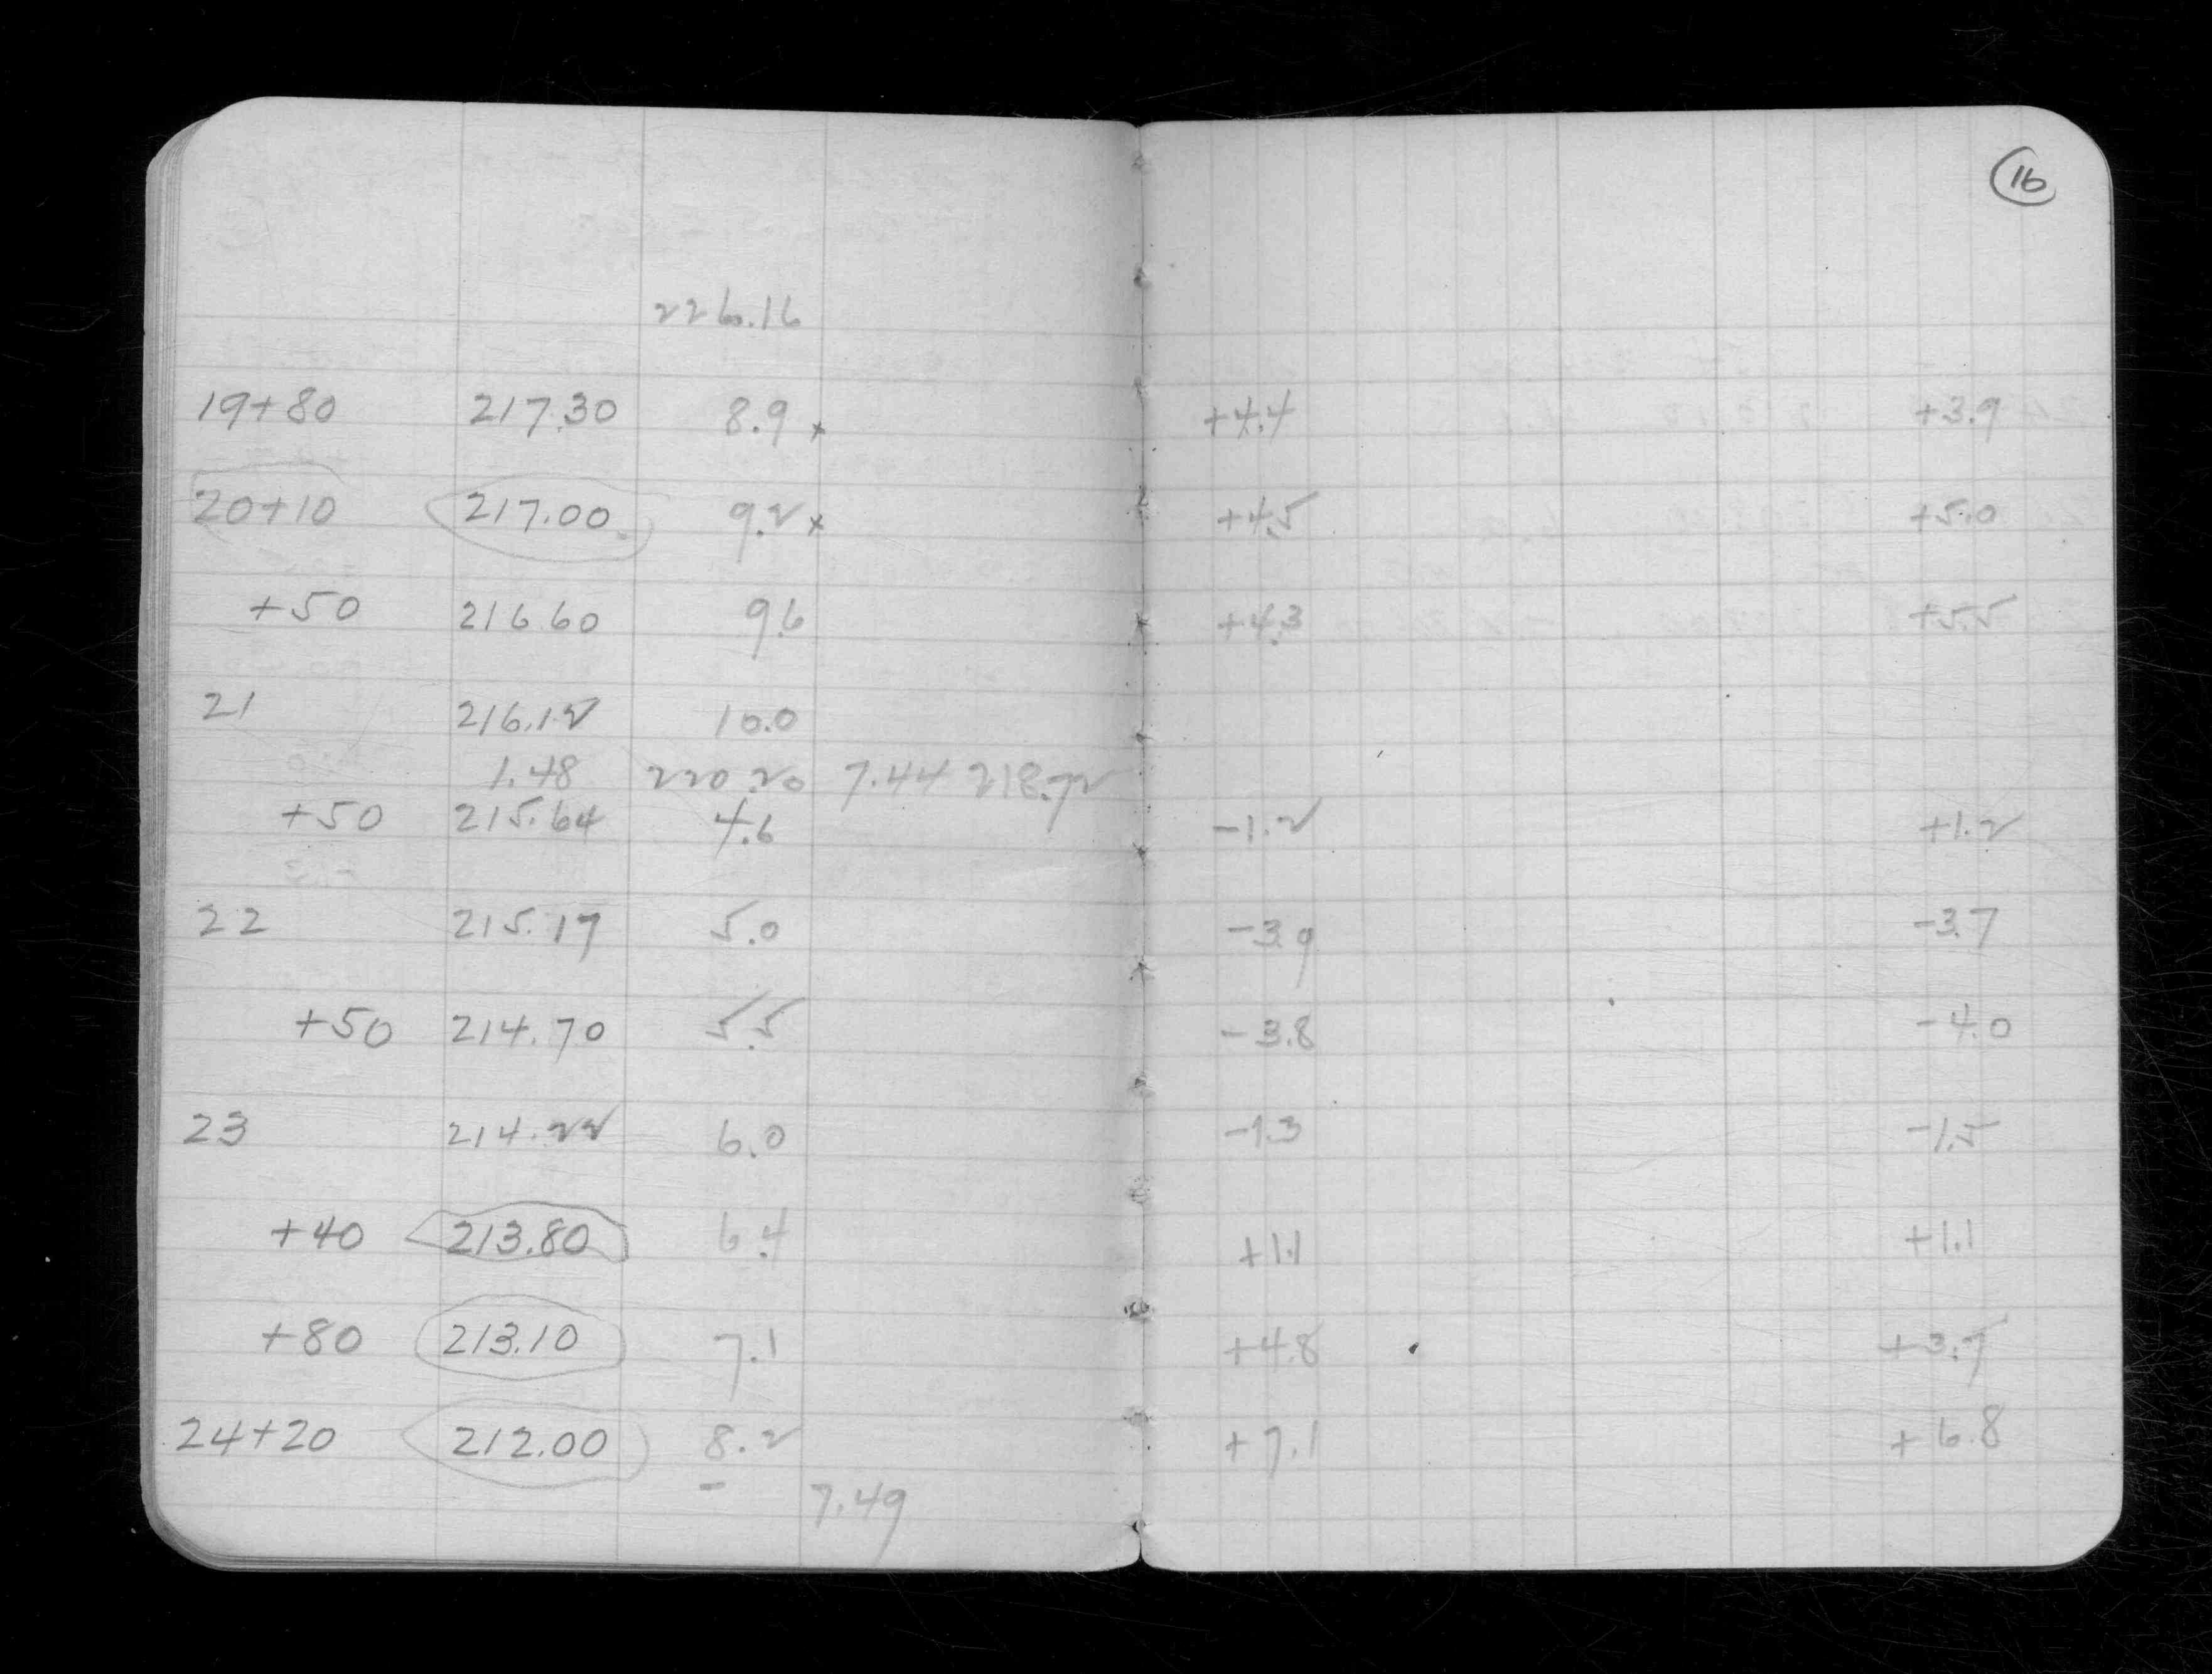 16
226.16
19+80 217.30 8.9 x +4.4 +3.9
20+10 217.00 9.2 x +4.5 +5.0
+50 216.60 9.6 +4.3 +5.5
21 216.12 10.0
1.48 220.20 7.44 218.72
+50 215.64 4.6 -1.2 +1.2
22 215.17 5.0 -3.9 -3.7
+50 214.70 5.5 -3.8 -4.0
23 214.22 6.0 -1.3 -1.5
+40 213.80 6.4 +1.1 +1.1
+80 213.10 7.1 +4.8 +3.7
24+20 212.00 8.2 +7.1 +6.8
- 7.49